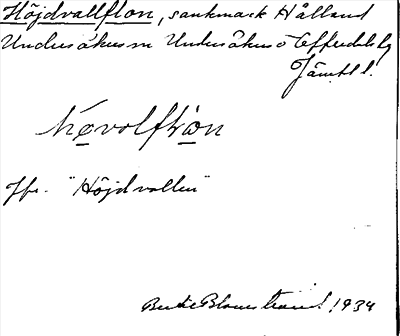 Höjdvallflon, sankmark Hålland
Undersåkers sn Undersåkers o Offerdals tg
Jämtl l.
hø̀volfɬọn
Jfr. "Höjdvallen"
Bertie Blomstrand 1934